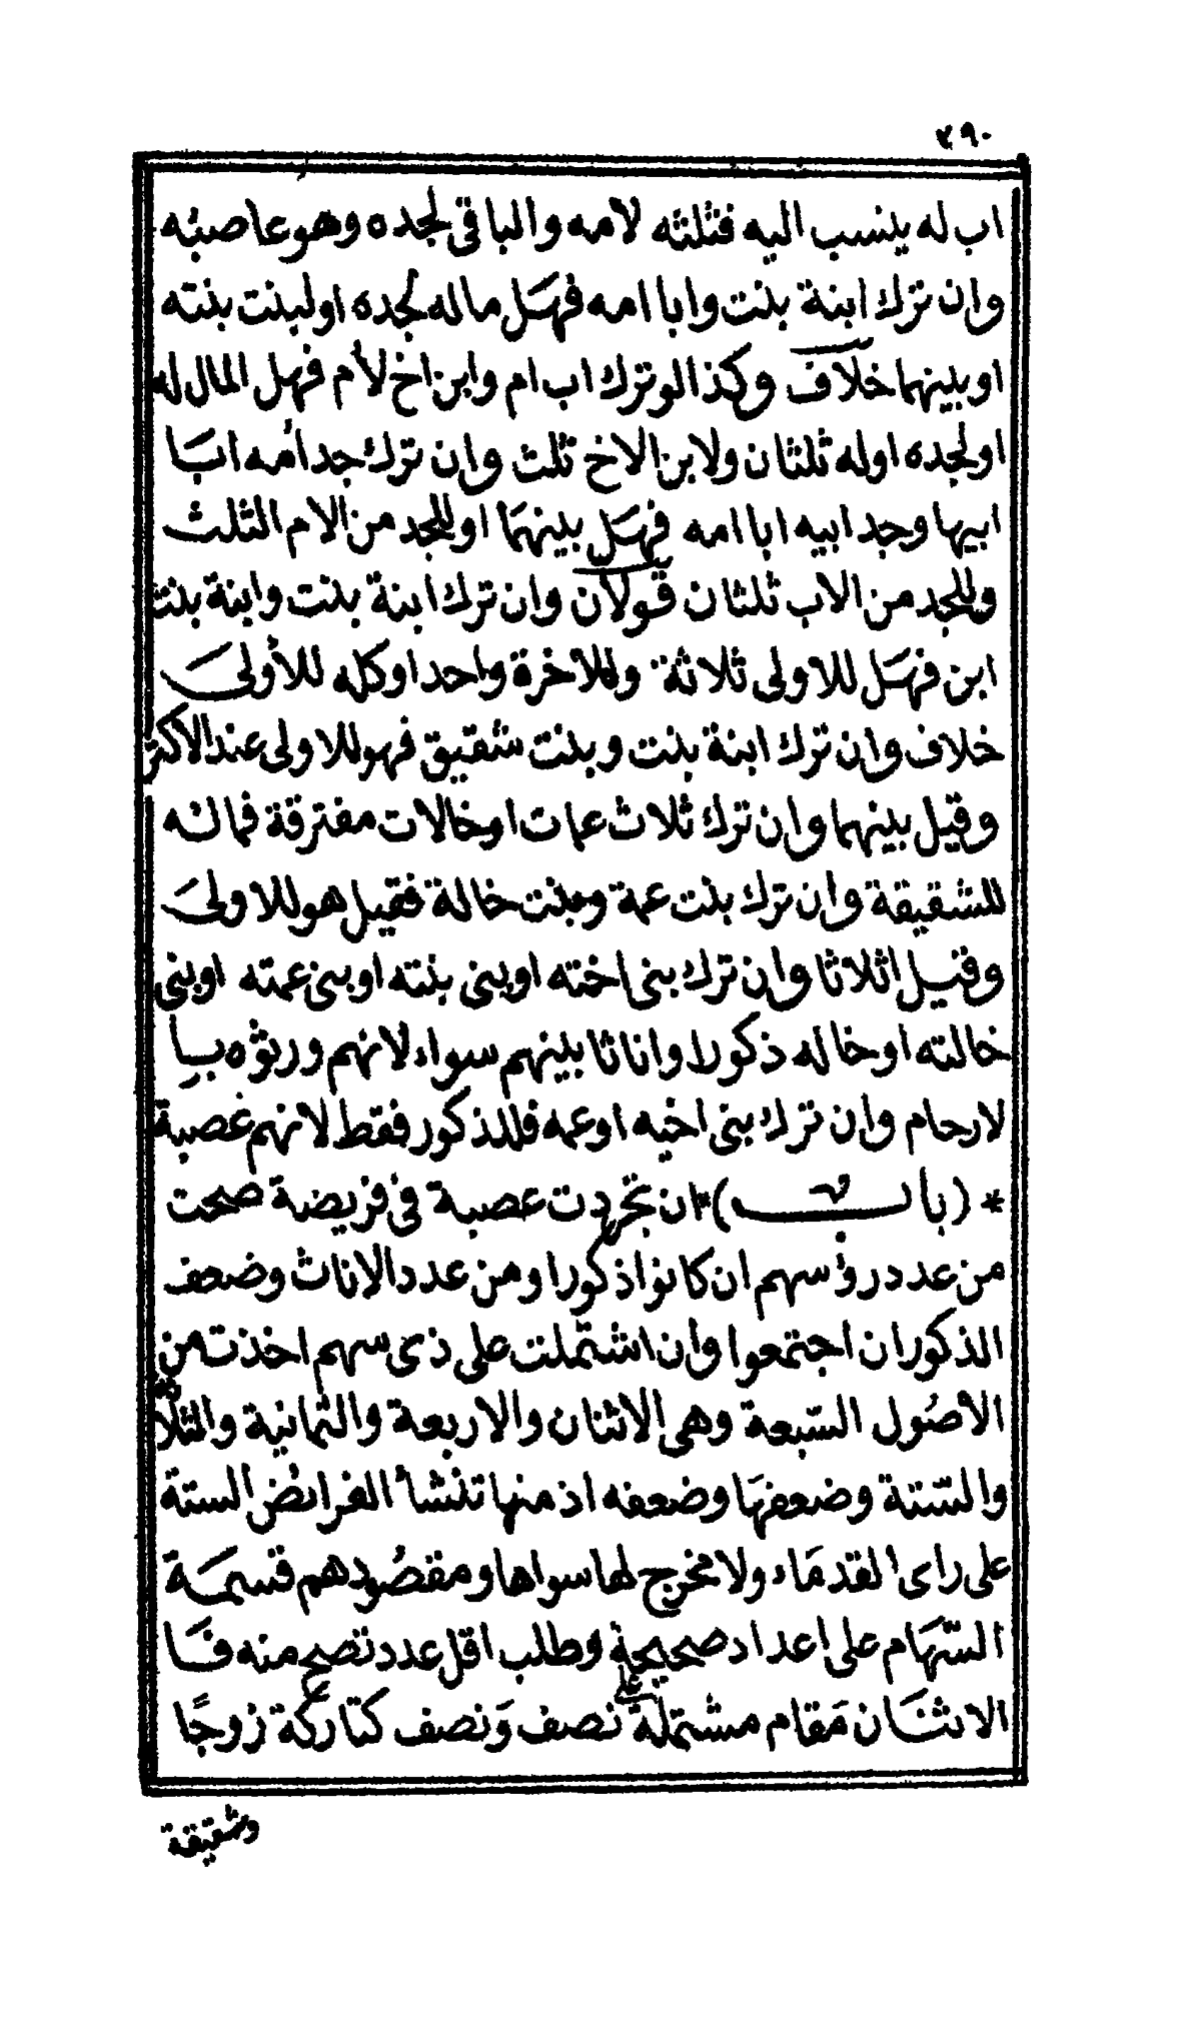 ٢٩٠
اب له ينسب اليه فثلثه لامه والباقى لجده وهو عاصبه
وان ترك ابنة بنت وابا امه فهل ماله لجده او لبنت بنته
او بينهما خلاف وكذا لو ترك اب ام وابن اخ لأم فهل المال له
او لجده او له ثلثان ولابن الاخ ثلث وان ترك جد أمه ابا
ابيها وجد ابيه ابا امه فهل بينهما او للجد من الام الثلث
وللجد من الاب ثلثان قولان وان ترك ابنة بنت وابنة بنت
ابن فهل للاولى ثلاثة وللاخرة واحد او كله للأولى
خلاف وان ترك ابنة بنت وبنت شقيق فهو للاولى عند الاكثر
وقيل بينهما وان ترك ثلاث عمات او خالات مفترقة فماله
للشقيقة وان ترك بنت عمة وبنت خالة فقيل هو للاولى
وقيل اثلاثا وان ترك بنى اخته او بنى بنته او بنى عمته او بنى
خالته او خاله ذكورا واناثا بينهم سواء لانهم ورثوه با
لارحام وان ترك بنى اخيه او عمه فللذكور فقط لانهم عصبة
* (باب) * ان تجردت عصبة فى فريضة صحت
من عدد رؤسهم ان كانوا ذكورا ومن عدد الاناث وضعف
الذكور ان اجتمعوا وان اشتملت على ذى سهم اخذت من
الاصُول السّبعة وهى الاثنان والاربعة والثمانية والثلاثة
والستة وضعفها وضعفه اذ منها تنشأ الفرائض الستة
على راى القدمَاء ولا مخرج لها سواها ومقصُودهم قسمَة
السّهَام على اعداد صحيحة وطلب اقل عدد تصح منه فا
الاثنَان مَقام مشتملة على نصف وَنصف كتاركة زوجًا
وشقيقة